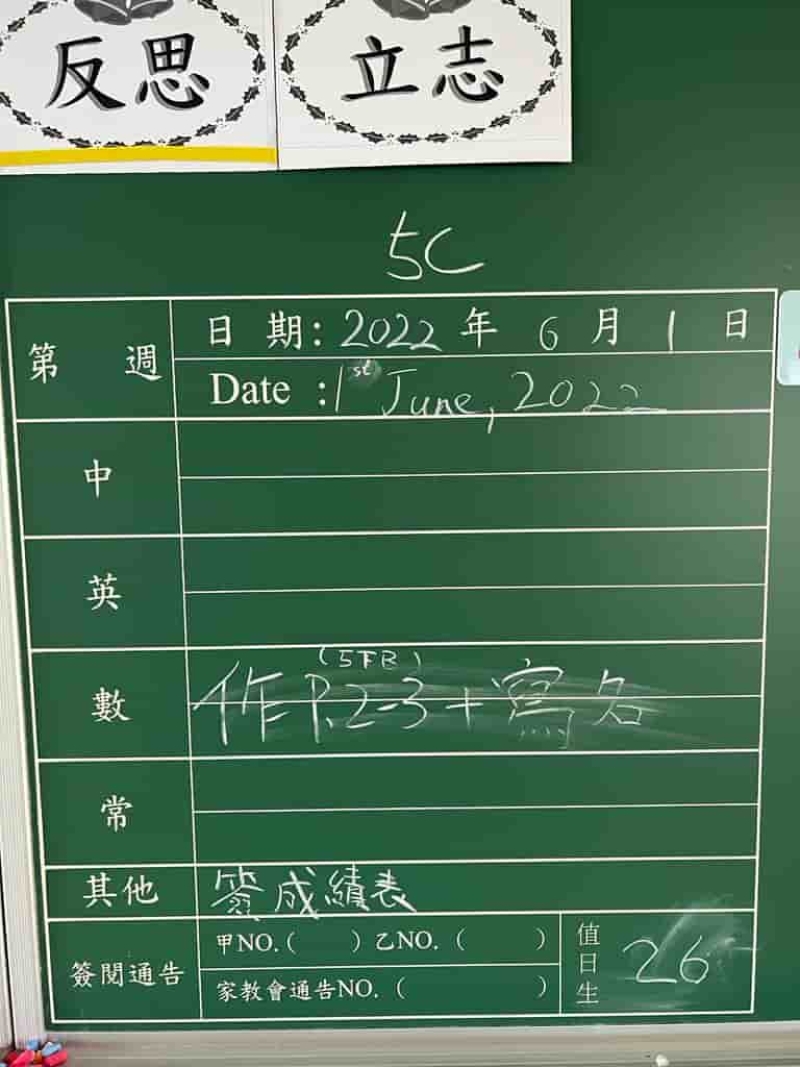 反思
立志
5C
第 週
日 期: 2022 年 6 月 1 日
Date : 1st June, 2022
中
英
數
(5下B)
作 P.2-3 + 寫名
常
其他
簽成績表
簽閱通告
甲NO.( ) 乙NO. ( )
家教會通告NO. ( )
值日生
26